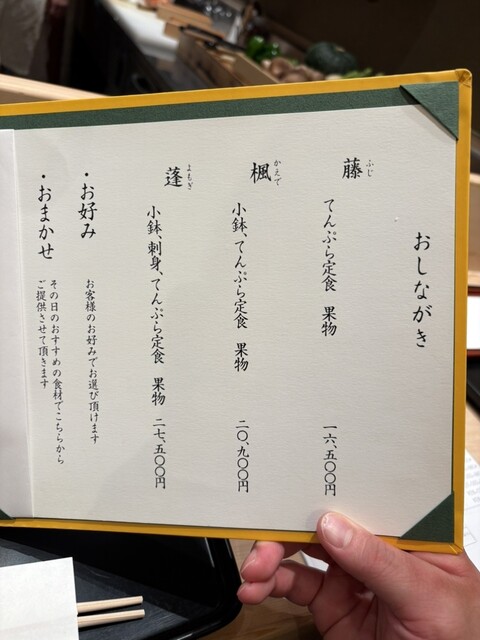 おしながき
藤 ふじ
てんぷら定食 果物 一六、五〇〇円
楓 かえで
小鉢、てんぷら定食 果物 二〇、九〇〇円
蓬 よもぎ
小鉢、刺身、てんぷら定食 果物 二七、五〇〇円
・お好み
お客様のお好みでお選び頂けます
・おまかせ
その日のおすすめの食材でこちらから
ご提供させて頂きます